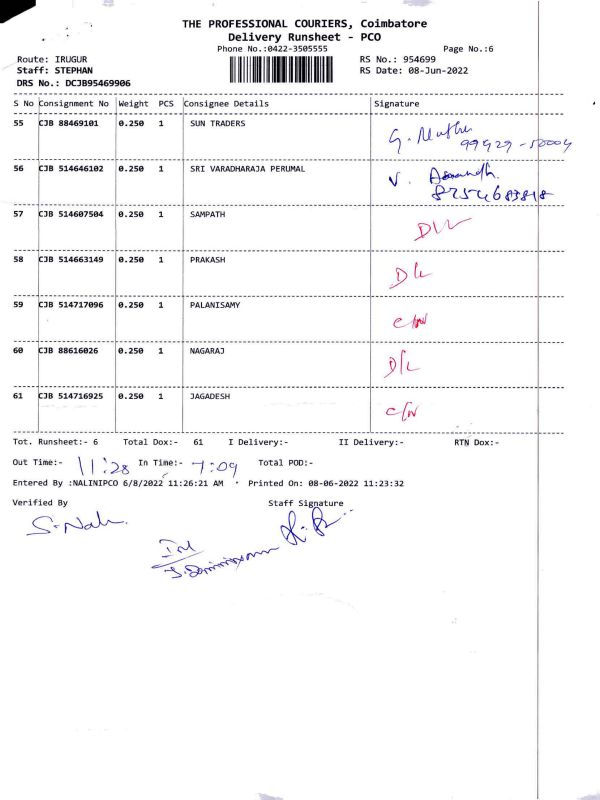 THE PROFESSIONAL COURIERS, Coimbatore
Delivery Runsheet - PCO
Phone No.:0422-3505555 Page No.:6
Route: IRUGUR RS No.: 954699
Staff: STEPHAN RS Date: 08-Jun-2022
DRS No.: DCJB95469906
S No Consignment No Weight PCS Consignee Details Signature
55 CJB 88469101 0.250 1 SUN TRADERS
99929-50004
56 CJB 514646102 0.250 1 SRI VARADHARAJA PERUMAL V.
8754683818
57 CJB 514607504 0.250 1 SAMPATH
58 CJB 514663149 0.250 1 PRAKASH D/L
59 CJB 514717096 0.250 1 PALANISAMY
60 CJB 88616026 0.250 1 NAGARAJ D/L
61 CJB 514716925 0.250 1 JAGADESH C/N
Tot. Runsheet:- 6 Total Dox:- 61 I Delivery:- II Delivery:- RTN Dox:-
Out Time:- 11:28 In Time:- 7:09 Total POD:-
Entered By :NALINIPCO 6/8/2022 11:26:21 AM Printed On: 08-06-2022 11:23:32
Verified By Staff Signature